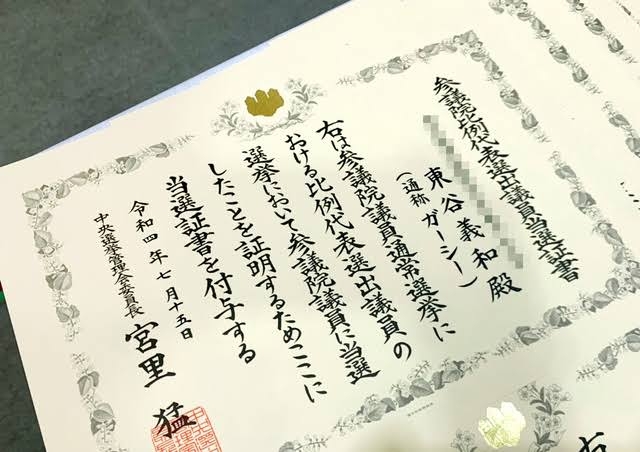 参議院比例代表選出議員当選証書
東谷義和殿
(通称 ガーシー)
右は参議院議員通常選挙に
おける比例代表選出議員の
選挙において参議院議員に当選
したことを証明するためここに
当選証書を付与する
令和四年七月十五日
中央選挙管理会委員長
宮里 猛